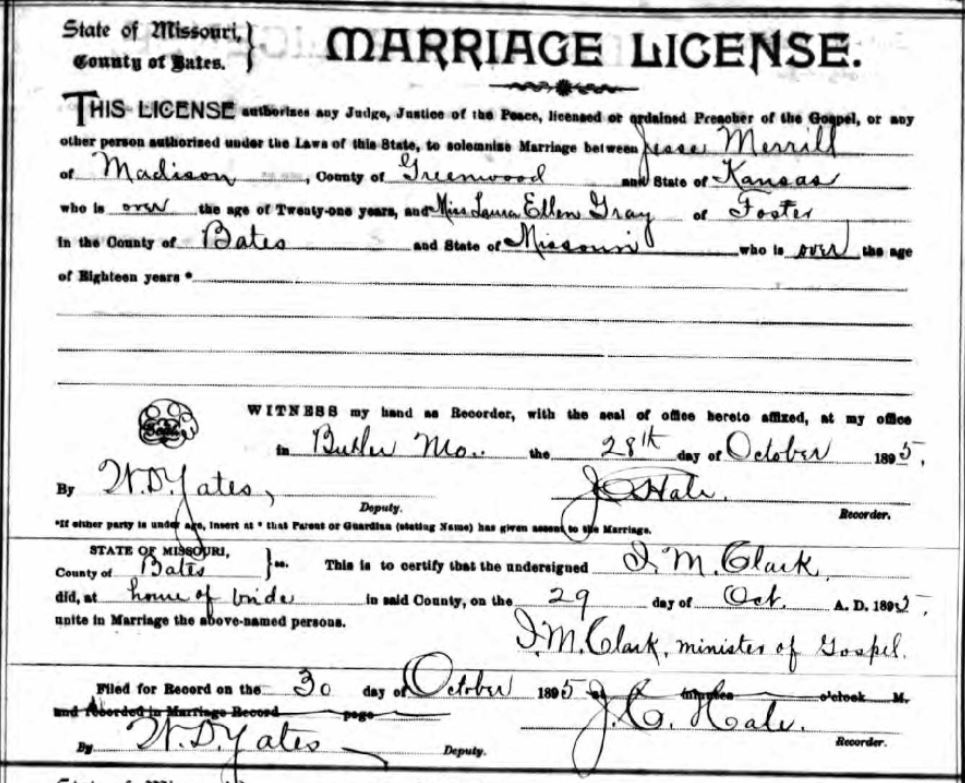 State of Missouri,
County of Bates.
MARRIAGE LICENSE.
THIS LICENSE authorizes any Judge, Justice of the Peace, licensed or ordained Preacher of the Gospel, or any
other person authorized under the Laws of this State, to solemnize Marriage between Jesse Merrill
of Madison, County of Greenwood and State of Kansas
who is over the age of Twenty-one years, and Miss Laura Ellen Gray of Foster
in the County of Bates and State of Missouri who is over the age
of Eighteen years *
WITNESS my hand as Recorder, with the seal of office hereto affixed, at my office
Seal
in Butler Mo. the 28th day of October 1895.
By W. D. Yates, J. C. Hale.
Deputy. Recorder.
*If either party is under age, insert at * that Parent or Guardian (stating Name) has given assent to the Marriage.
STATE OF MISSOURI,
County of Bates } ss. This is to certify that the undersigned I. M. Clark
did, at home of bride in said County, on the 29 day of Oct. A. D. 1895,
unite in Marriage the above-named persons.
I. M. Clark, minister of Gospel.
Filed for Record on the 30 day of October 1895 at minutes o'clock M.
and recorded in Marriage Record page J. C. Hale.
By W. D. Yates Deputy. Recorder.